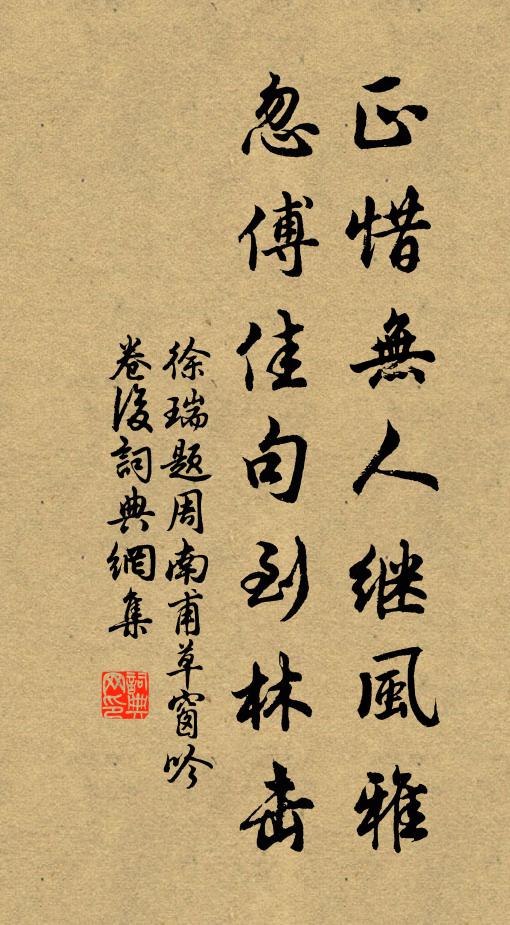 正惜無人継風雅
忽傅佳句到林
徐瑞題周南甫草窗吟
卷後詞典網集
詞典網印